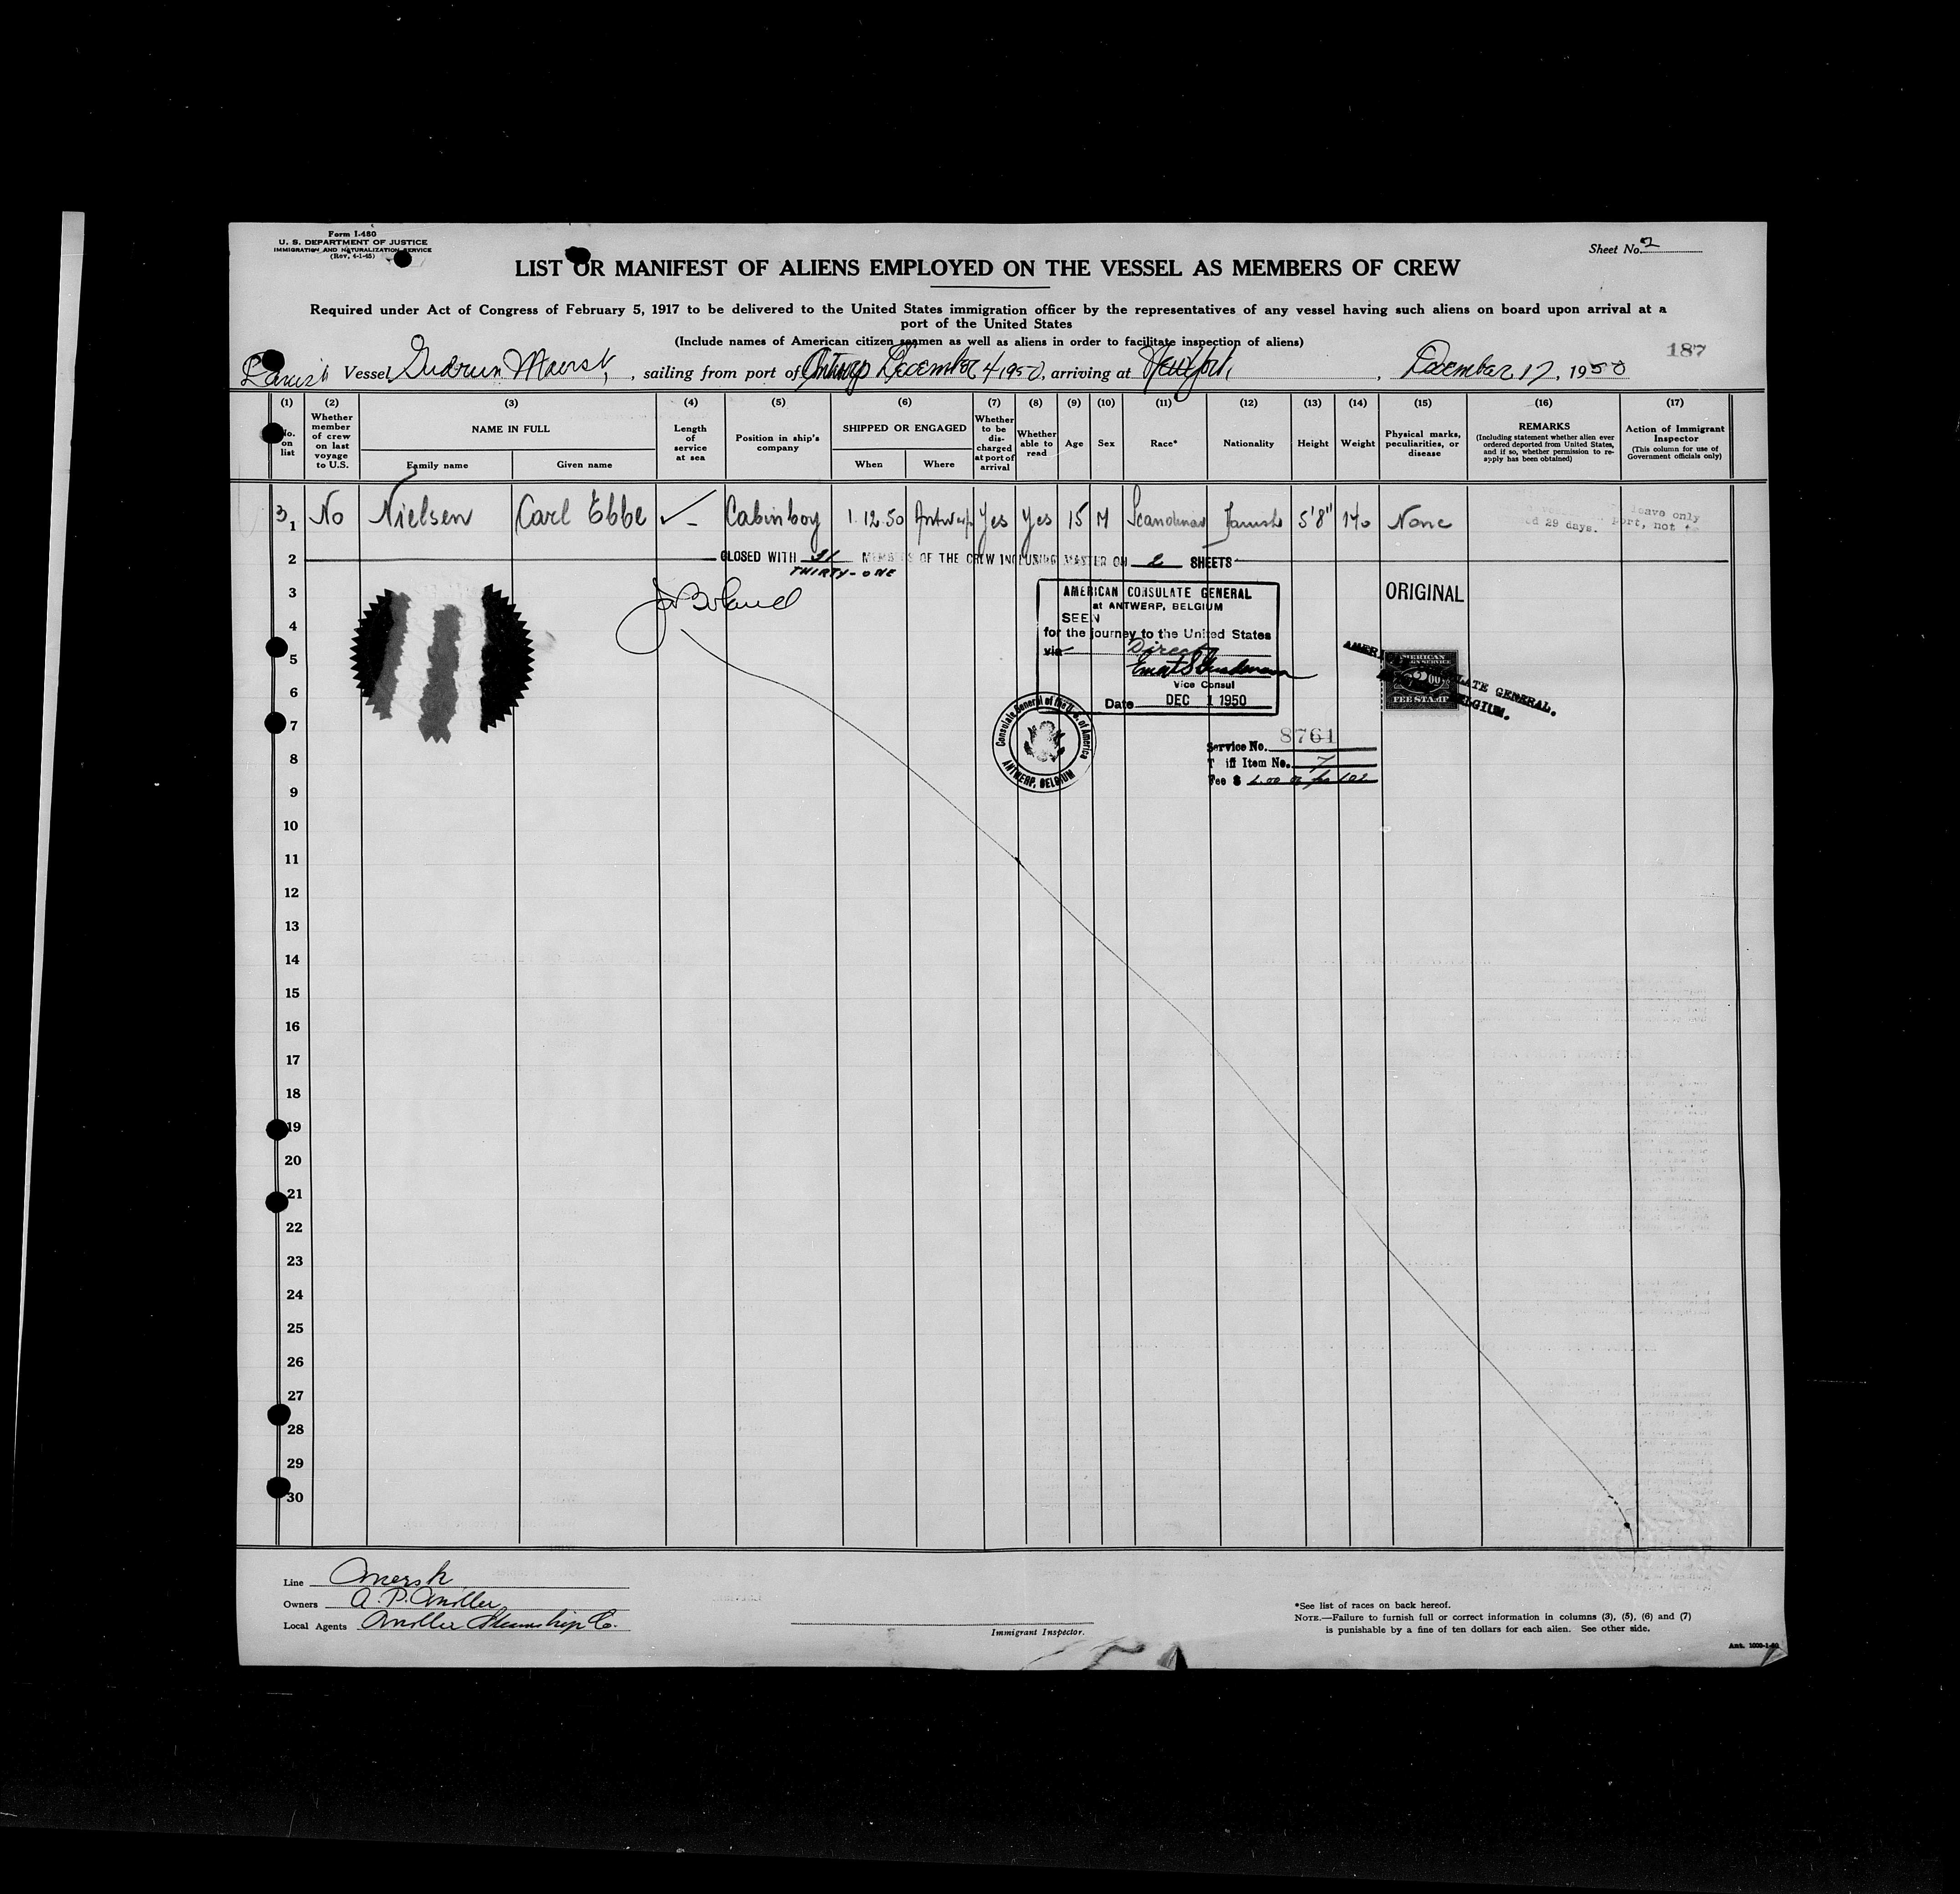 Form I-480
U. S. DEPARTMENT OF JUSTICE
IMMIGRATION AND NATURALIZATION SERVICE
(Rev. 4-1-45)
Sheet No. 2
LIST OR MANIFEST OF ALIENS EMPLOYED ON THE VESSEL AS MEMBERS OF CREW
Required under Act of Congress of February 5, 1917 to be delivered to the United States immigration officer by the representatives of any vessel having such aliens on board upon arrival at a
port of the United States
(Include names of American citizen seamen as well as aliens in order to facilitate inspection of aliens)
187
Danish Vessel Gudrun Maersk, sailing from port of Antwerp December 4 1950, arriving at New York, December 17, 1950
(1) (2) (3) (4) (5) (6) (7) (8) (9) (10) (11) (12) (13) (14) (15) (16) (17)
No. on list
Whether member of crew on last voyage to U.S.
NAME IN FULL
Family name
Given name
Length of service at sea
Position in ship's company
SHIPPED OR ENGAGED
When
Where
Whether to be discharged at port of arrival
Whether able to read
Age
Sex
Race*
Nationality
Height
Weight
Physical marks, peculiarities, or disease
REMARKS
(Including statement whether alien ever ordered deported from United States, and if so, whether permission to reapply has been obtained)
Action of Immigrant Inspector
(This column for use of Government officials only)
31 No Nielsen Carl Ebbe Cabin boy 1.12.50 Antwerp Yes Yes 15 M Scandinav Danish 5'8" 140 None
leave only
29 days. port, not
2 CLOSED WITH 31 MEMBERS OF THE CREW INCLUDING MASTER ON 2 SHEETS
THIRTY-ONE
3
4
5
6
7
8
9
10
11
12
13
14
15
16
17
18
19
20
21
22
23
24
25
26
27
28
29
30
AMERICAN CONSULATE GENERAL
at ANTWERP, BELGIUM
SEEN
for the journey to the United States
via Direct
Vice Consul
Date DEC 1 1950
Consulate General of the U.S. of America
ANTWERP, BELGIUM
ORIGINAL
AMERICAN
FEE STAMP
LATE GENERAL.
BELGIUM.
Service No. 8761
T iff Item No. 7
Fee $ 2.00
Line Maersk
Owners A. P. Moller
Local Agents Moller Steamship Co.
Immigrant Inspector.
*See list of races on back hereof.
NOTE.—Failure to furnish full or correct information in columns (3), (5), (6) and (7)
is punishable by a fine of ten dollars for each alien. See other side.